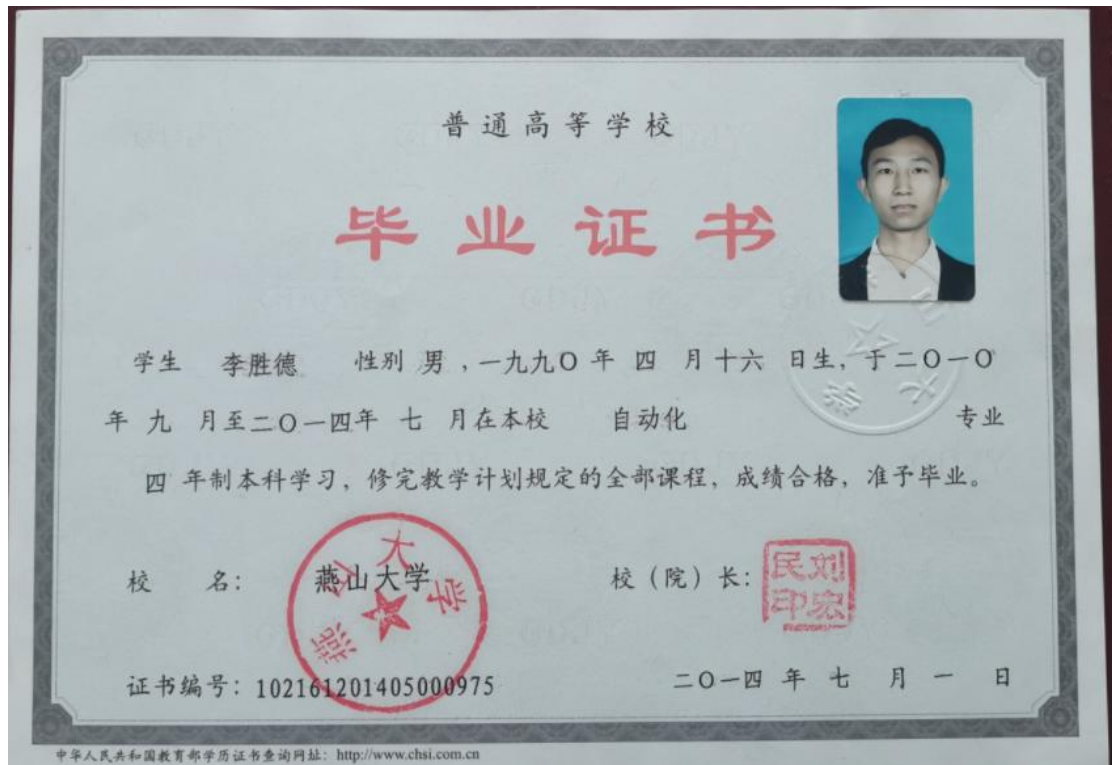 普通高等学校
毕业证书
学生 李胜德 性别 男 ,一九九〇 年 四 月 十六 日生, 于二〇一〇
年 九 月至二〇一四年 七 月在本校 自动化 专业
四 年制本科学习, 修完教学计划规定的全部课程, 成绩合格, 准予毕业。
校 名: 燕山大学 校(院)长:
燕山大学
刘宏民印
证书编号: 102161201405000975 二〇一四 年 七 月 一 日
中华人民共和国教育部学历证书查询网址: http://www.chsi.com.cn